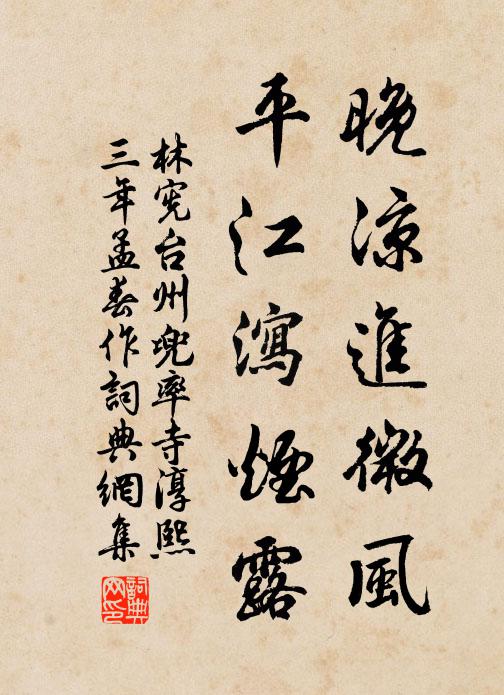 晚涼進微風
平江瀉煙露
林宪台州兜率寺淳熙
三年孟春作詞典網集
詞典
网印